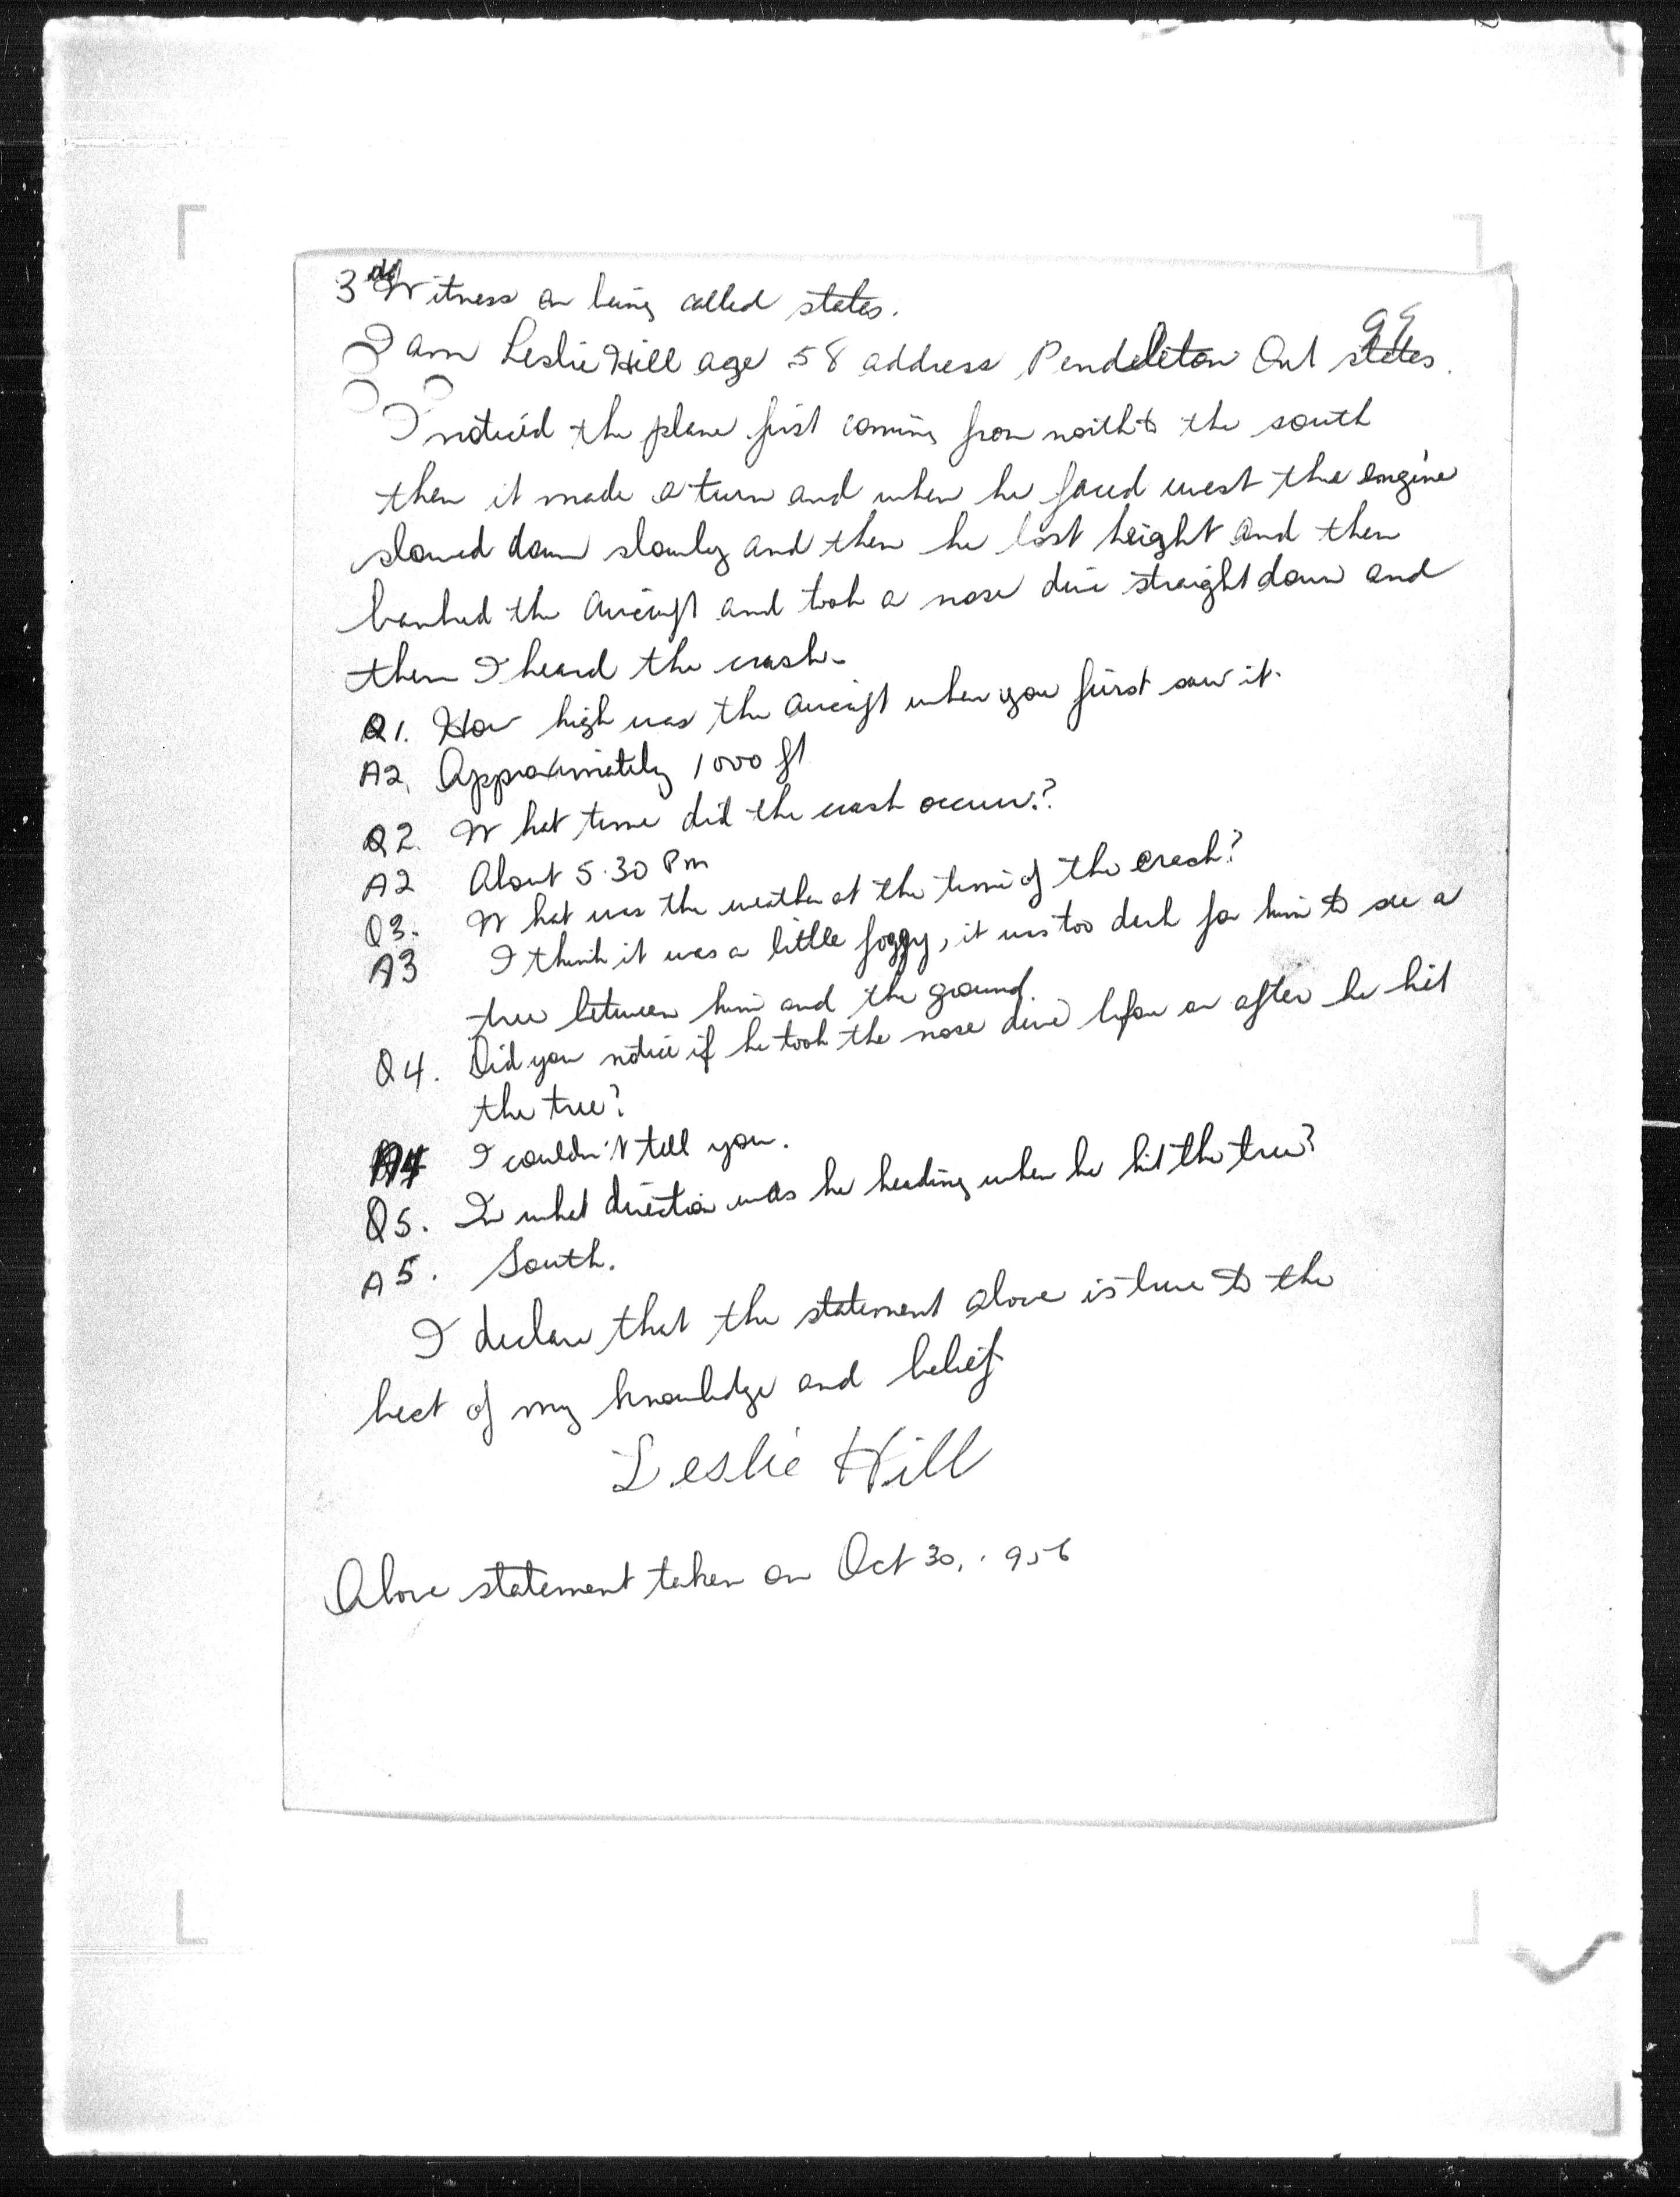 3rd Witness on being called states.
99
I am Leslie Hill age 58 address Pendeleton Ont states.
I noticed the plane first coming from north to the south
then it made a turn and when he faced west the engine
slowed down slowly and then he lost height and then
banked the aircraft and took a nose dive straight down and
then I heard the crash.
Q1. How high was the aircraft when you first saw it.
A2. Approximately 1000 ft
Q2. What time did the crash occur.?
A2 About 5.30 Pm
Q3. What was the weather at the time of the crash?
A3 I think it was a little foggy, it was too dark for him to see a
tree between him and the ground.
Q4. Did you notice if he took the nose dive before or after he hit
the tree?
A4 I couldn't tell you.
Q5. In what direction was he heading when he hit the tree?
A5. South.
I declare that the statement above is true to the
best of my knowledge and belief.
Leslie Hill
Above statement taken on Oct 30,